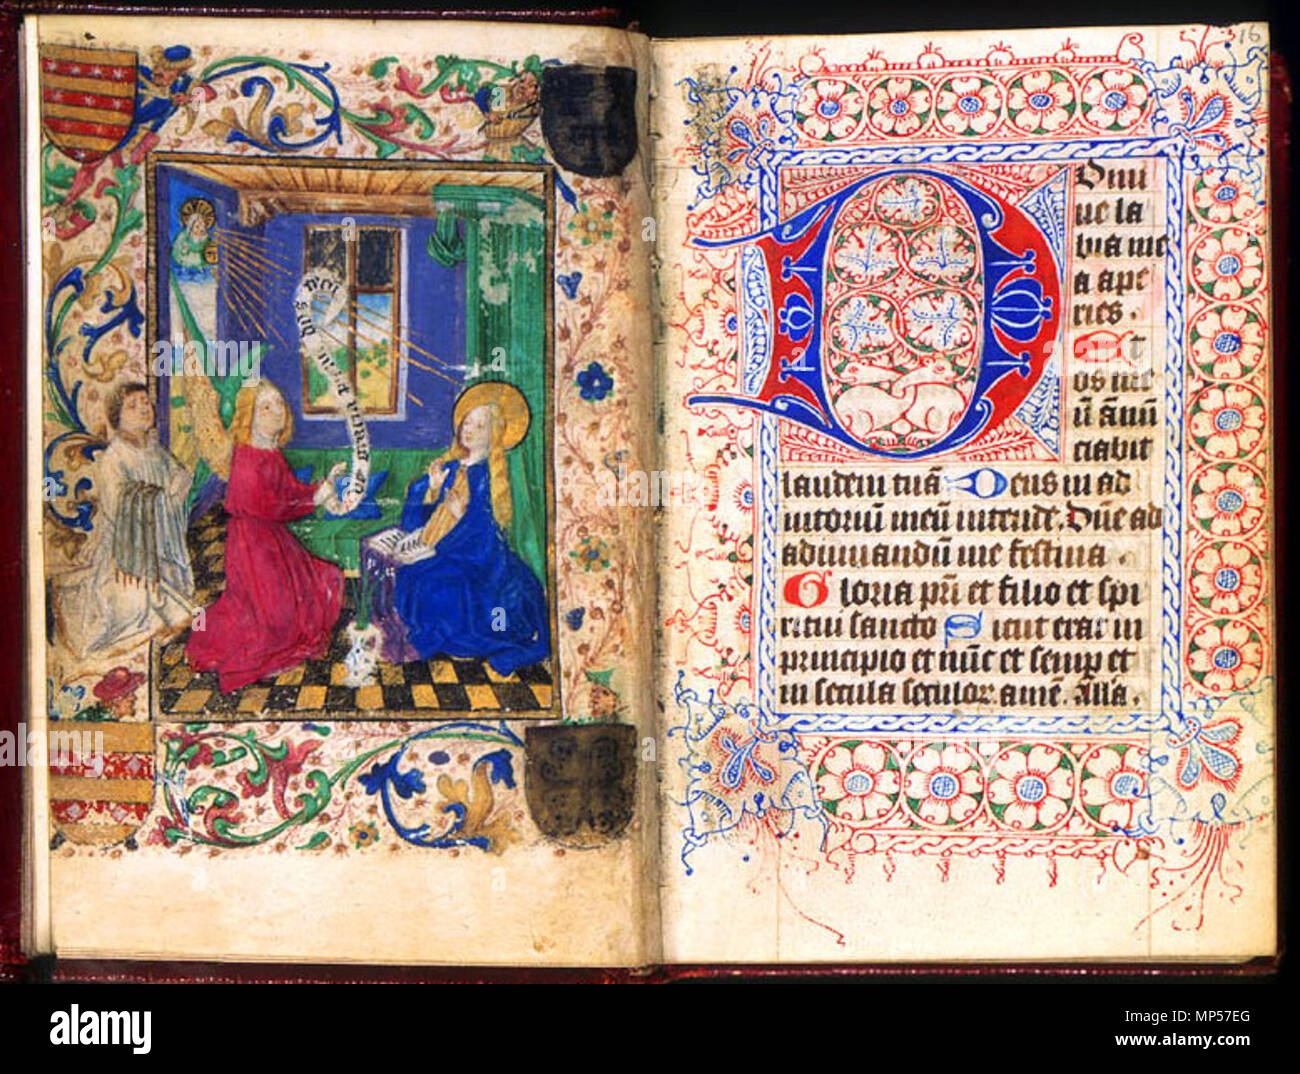 16
D Omi
ne la
bia me
a ape
ries .
Et
os me
ū ānū
ciabit
laudem tuā Deus in ad
iutoriū meū intende. Dn̄e ad
adiuuandū me festina .
Gloria pr̄i et filio et spi
ritui sancto Sicut erat in
principio et nūc et semp et
in secula seculor amē. Alla .
alamy
Image ID: MP57EG
www.alamy.com